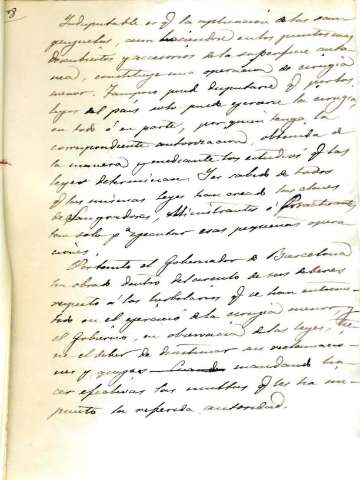 8
Indisputable es q̃ la aplicación de las san
guijuelas, aun haciendose en los puntos mas
descubiertos y accesorios de la superficie cutá
nea, constituye una operación de cirugía
menor. Tampoco puede disputarse q̃ por las
leyes del país solo puede ejercerse la cirugía,
en todo ó en parte, por quien tenga la
correspondiente autorización, obtenida de
la manera y mediante los estudios q̃ las
leyes determinan. Es sabido de todos
q̃ las mismas leyes han creado las clases
de Sangradores, Ministrantes ó Practicantes
tan solo pª ejecutar esas pequeñas opera
ciones.
Por tanto el Gobernador de Barcelona
ha obrado dentro del círculo de sus deberes
respecto á los barberos q̃ se han entrome
tido en el ejercicio de la cirugía menor, y
el Gobierno, en observancia de las leyes, tie
ne el deber de desestimar sus reclamacio
nes y quejas mandando ha
cer efectivas las multas q̃ les ha im
puesto la referida autoridad.